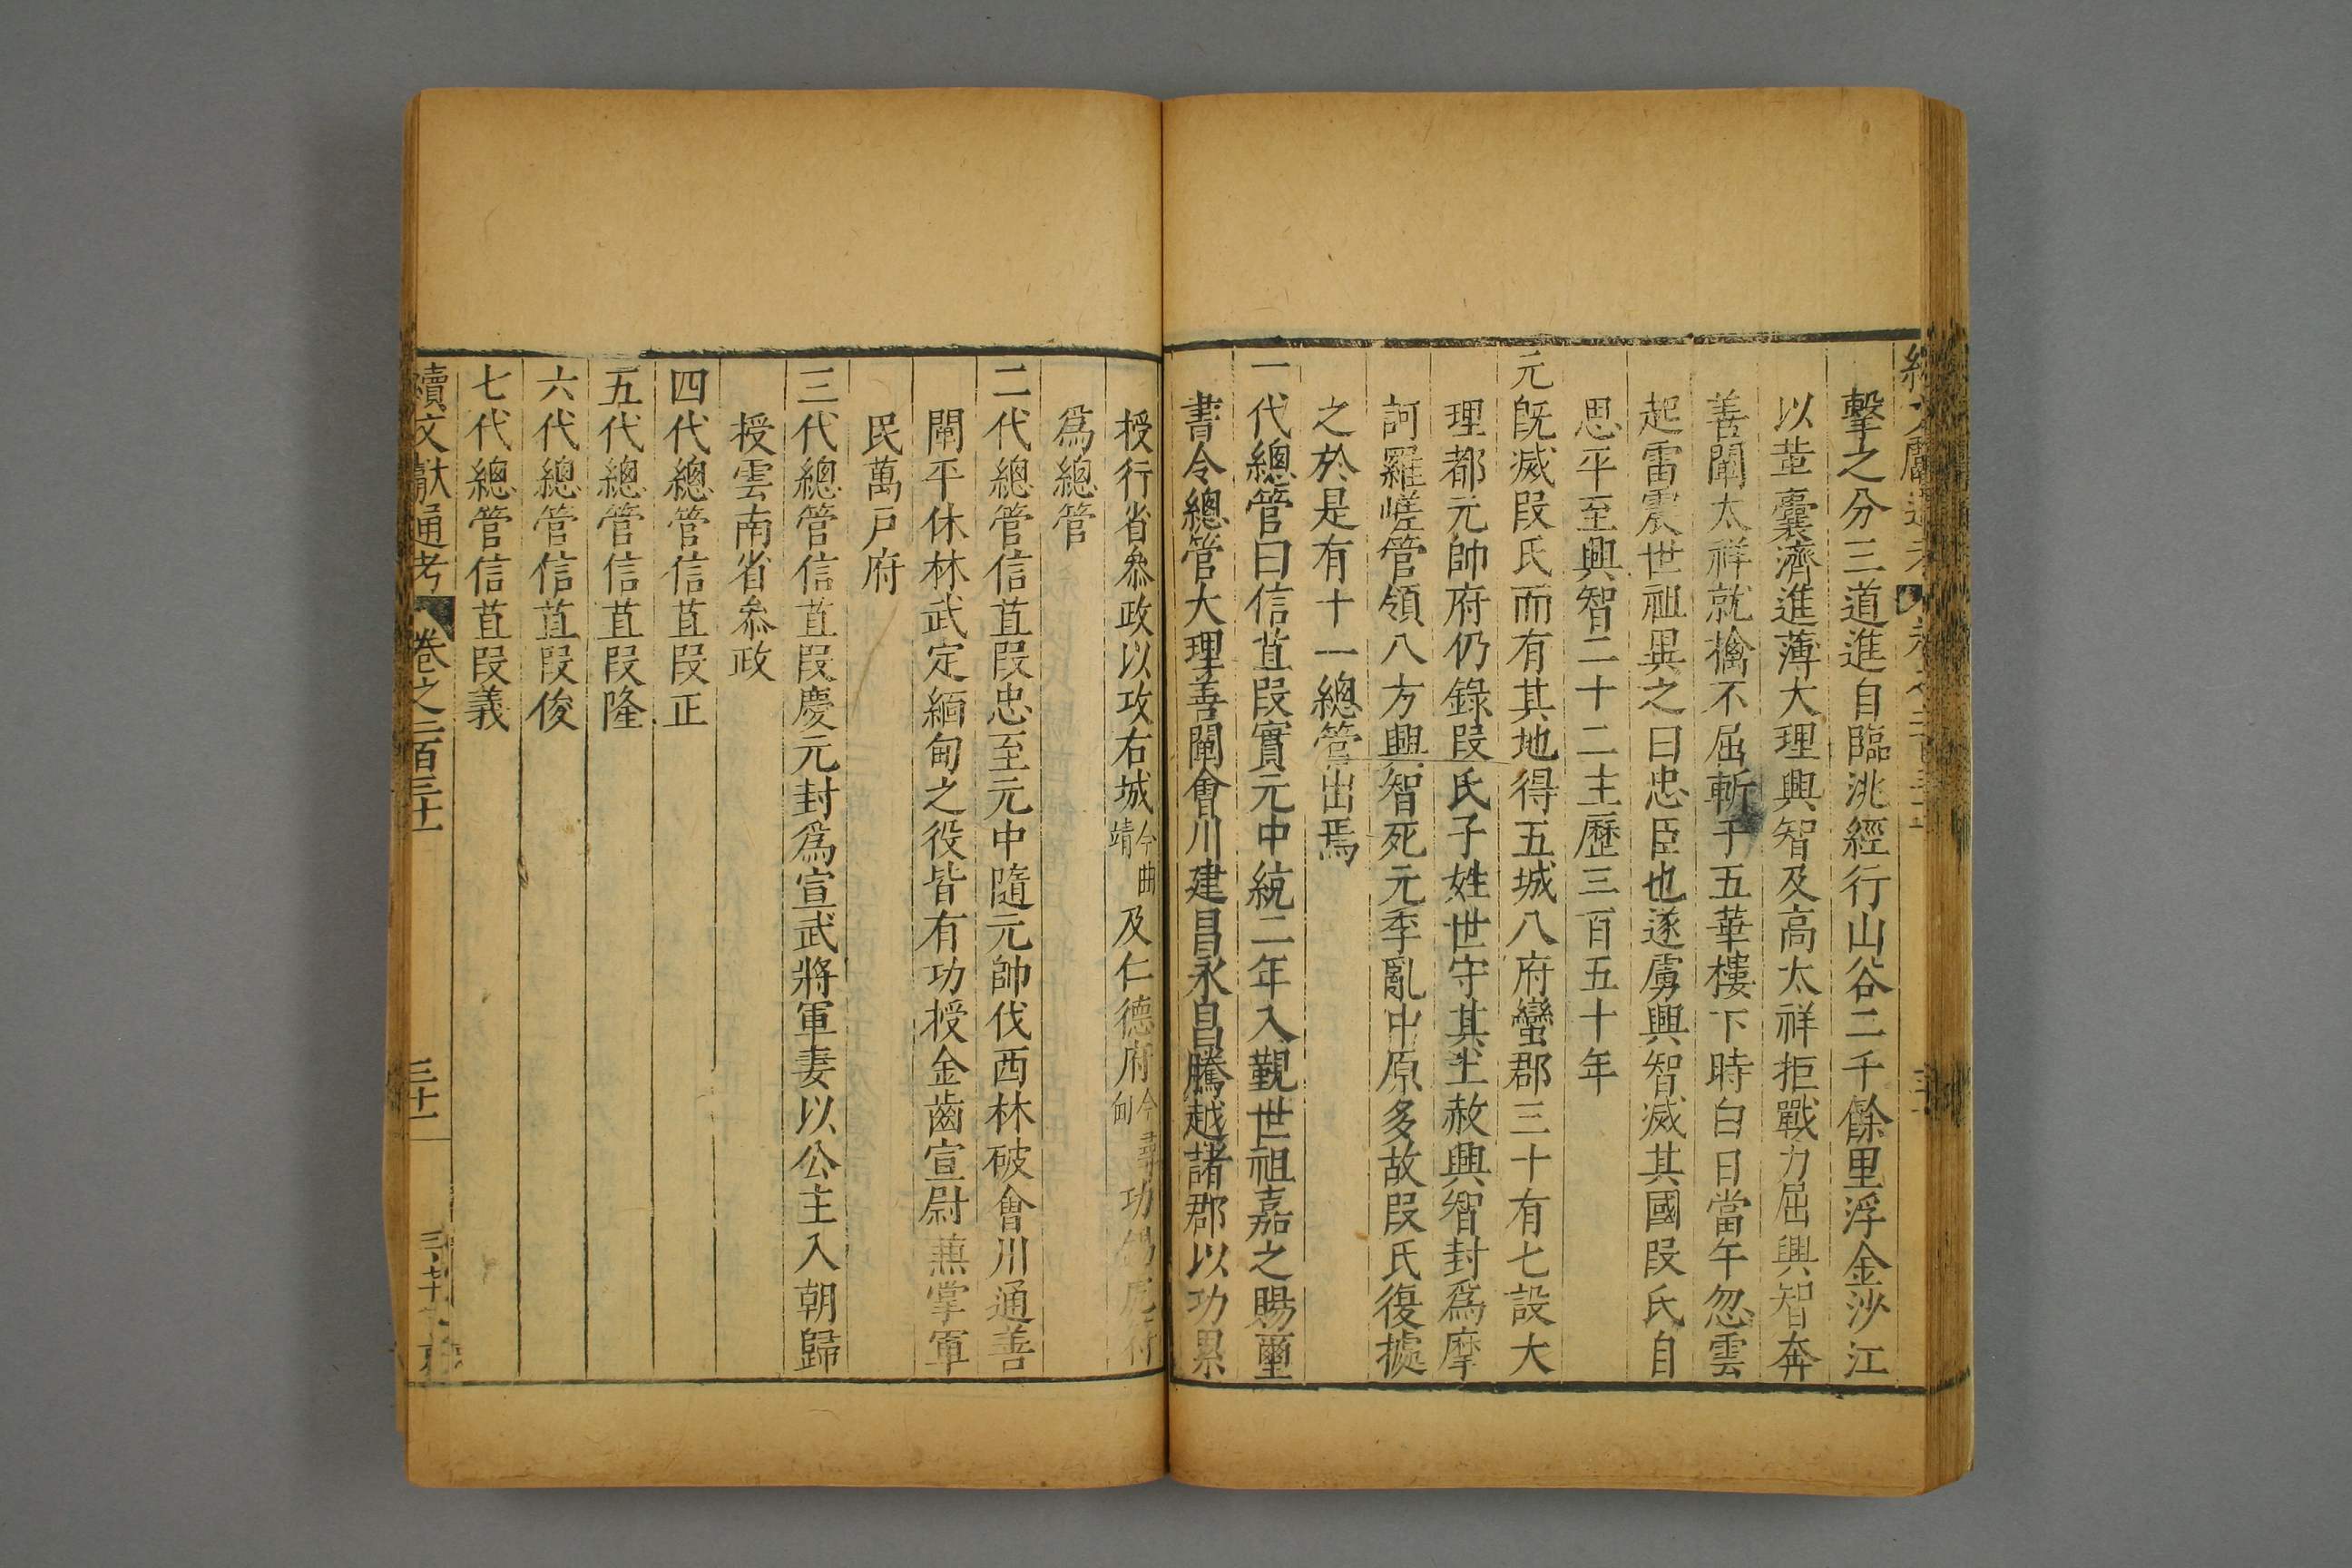 擊之分三道進自臨洮經行山谷二千餘里浮金沙江
以革囊濟進薄大理興智及高太祥拒戰力屈興智奔
善闡太祥就擒不屈斬于五華樓下時白日當午忽雲
起雷震世祖異之曰忠臣也遂虜興智滅其國段氏自
思平至興智二十二主歷三百五十年
元旣滅段氏而有其地得五城八府蠻郡三十有七設大
理都元帥府仍錄段氏子姓世守其土赦興智封爲摩
訶羅嵯管領八方興智死元季亂中原多故段氏復據
之於是有十一總管出焉
一代總管曰信苴段實元中統二年入覲世祖嘉之賜璽
書令總管大理善闡會川建昌永昌騰越諸郡以功累
授行省叅政以攻右城今曲靖及仁德府今尋甸功佩虎符
爲總管
二代總管信苴段忠至元中隨元帥伐西林破會川通善
闡平休林武定緬甸之役皆有功授金齒宣尉蕪掌軍
民萬戸府
三代總管信苴段慶元封爲宣武將軍妻以公主入朝歸
授雲南省叅政
四代總管信苴段正
五代總管信苴段隆
六代總管信苴段俊
七代總管信苴段義
續文獻通考 卷之二百三十一 三十一